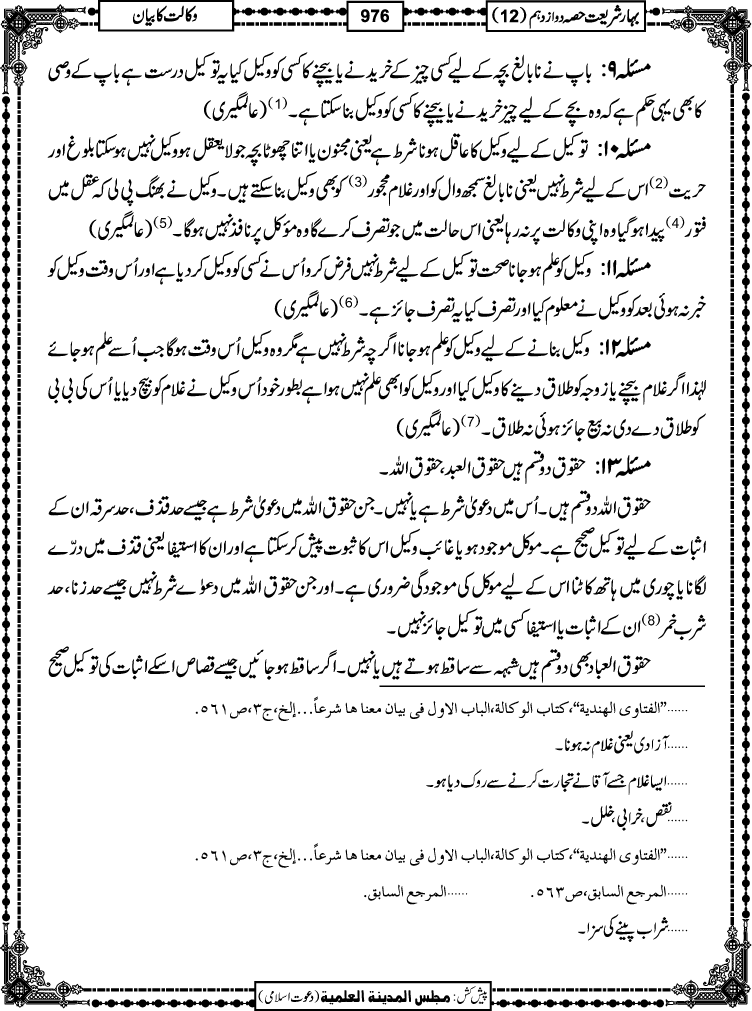 بہارِ شریعت حصہ دوازدہم (12)
976
وکالت کا بیان
مسئلہ ۹: باپ نے نابالغ بچہ کے لیے کسی چیز کے خریدنے یا بیچنے کا کسی کو وکیل کیا یہ توکیل درست ہے باپ کے وصی
کا بھی یہی حکم ہے کہ وہ بچے کے لیے چیز خریدنے یا بیچنے کا کسی کو وکیل بنا سکتا ہے۔(1) (عالمگیری)
مسئلہ ۱۰: توکیل کے لیے وکیل کا عاقل ہونا شرط ہے یعنی مجنون یا اتنا چھوٹا بچہ جو لایعقل ہو وکیل نہیں ہوسکتا بلوغ اور
حریت(2) اس کے لیے شرط نہیں یعنی نابالغ سمجھ وال کو اور غلام محجور(3) کو بھی وکیل بنا سکتے ہیں۔ وکیل نے بھنگ پی لی کہ عقل میں
فتور(4) پیدا ہوگیا وہ اپنی وکالت پر نہ رہا یعنی اس حالت میں جو تصرف کرے گا وہ مؤکل پر نافذ نہیں ہوگا۔(5) (عالمگیری)
مسئلہ ۱۱: وکیل کو علم ہو جانا صحت توکیل کے لیے شرط نہیں فرض کرو اُس نے کسی کو وکیل کر دیا ہے اور اُس وقت وکیل کو
خبر نہ ہوئی بعد کو وکیل نے معلوم کیا اور تصرف کیا یہ تصرف جائز ہے۔(6) (عالمگیری)
مسئلہ ۱۲: وکیل بنانے کے لیے وکیل کو علم ہو جانا اگرچہ شرط نہیں ہے مگر وہ وکیل اُس وقت ہوگا جب اُسے علم ہو جائے
لہٰذا اگر غلام بیچنے یا زوجہ کو طلاق دینے کا وکیل کیا اور وکیل کو ابھی علم نہیں ہوا ہے بطور خود اُس وکیل نے غلام کو بیچ دیا یا اُس کی بی بی
کو طلاق دے دی نہ بیع جائز ہوئی نہ طلاق۔(7) (عالمگیری)
مسئلہ ۱۳: حقوق دو قسم ہیں حقوق العبد، حقوق اللہ۔
حقوق اللہ دو قسم ہیں۔ اُس میں دعویٰ شرط ہے یا نہیں۔ جن حقوق اللہ میں دعویٰ شرط ہے جیسے حد قذف، حد سرقہ ان کے
اثبات کے لیے توکیل صحیح ہے۔ موکل موجود ہو یا غائب وکیل اس کا ثبوت پیش کر سکتا ہے اور ان کا استیفا یعنی قذف میں درّے
لگانا یا چوری میں ہاتھ کاٹنا اس کے لیے موکل کی موجودگی ضروری ہے۔ اور جن حقوق اللہ میں دعوےٰ شرط نہیں جیسے حد زنا، حد
شرب خمر(8) ان کے اثبات یا استیفا کسی میں توکیل جائز نہیں۔
حقوق العباد بھی دو قسم ہیں شبہہ سے ساقط ہوتے ہیں یا نہیں۔ اگر ساقط ہو جائیں جیسے قصاص اسکے اثبات کی توکیل صحیح
......”الفتاوی الھندیة“، کتاب الوکالة، الباب الاول فی بیان معناھا شرعاً...إلخ، ج۳، ص۵۶۱.
......آزادی یعنی غلام نہ ہونا۔
......ایسا غلام جسے آقا نے تجارت کرنے سے روک دیا ہو۔
......نقص، خرابی، خلل۔
......”الفتاوی الھندیة“، کتاب الوکالة، الباب الاول فی بیان معناھا شرعاً...إلخ، ج۳، ص۵۶۱.
......المرجع السابق، ص۵۶۳. ......المرجع السابق.
......شراب پینے کی سزا۔
پیش کش: مجلس المدینة العلمیة (دعوت اسلامی)